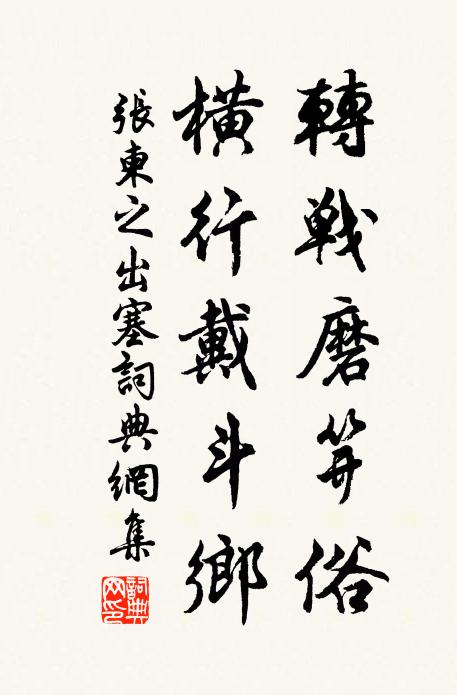 轉戰磨笄俗
橫行戴斗鄉
張東之出塞詞典網集
詞典
网印